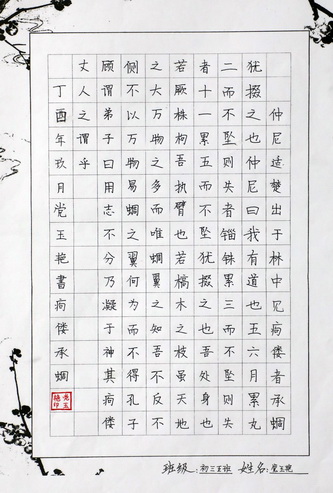 仲尼适楚出于林中见痀偻者承蜩
犹掇之也仲尼曰我有道也五六月累丸
二而不坠则失者锱铢累三而不坠则失
者十一累五而不坠犹掇之也吾处身也
若厥株枸吾执臂也若槁木之枝虽天地
之大万物之多而唯蜩翼之知吾不反不
侧不以万物易蜩之翼何为而不得孔子
顾谓弟子曰用志不分乃凝于神其痀偻
丈人之谓乎
丁酉年玖月党玉艳書痀偻承蜩
党玉艳印
班级:初三五班 姓名:党玉艳